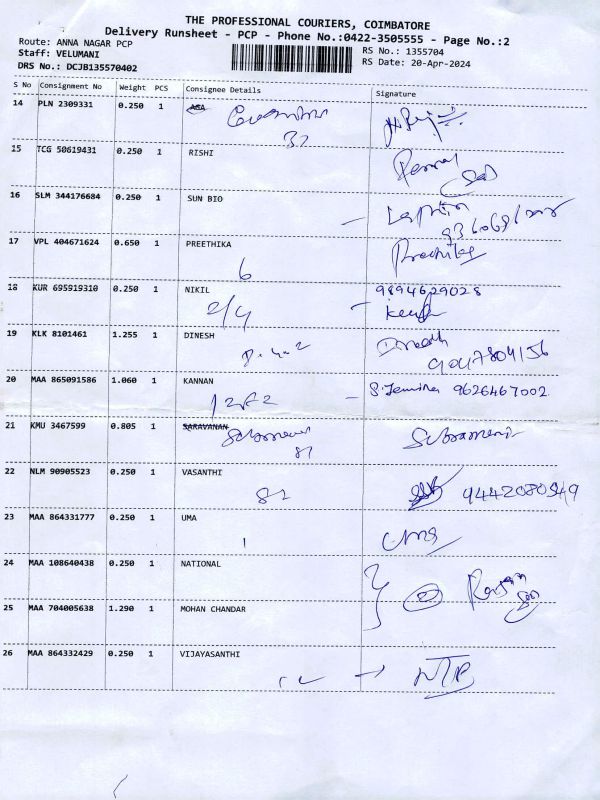 THE PROFESSIONAL COURIERS, COIMBATORE
Delivery Runsheet - PCP - Phone No.:0422-3505555 - Page No.:2
Route: ANNA NAGAR PCP
RS No.: 1355704
Staff: VELUMANI
RS Date: 20-Apr-2024
DRS No.: DCJB135570402
S No Consignment No Weight PCS Consignee Details Signature
14 PLN 2309331 0.250 1
32
15 TCG 50619431 0.250 1 RISHI
16 SLM 344176684 0.250 1 SUN BIO
17 VPL 404671624 0.650 1 PREETHIKA
6
18 KUR 695919310 0.250 1 NIKIL 9894629028
2/4
19 KLK 8101461 1.255 1 DINESH Dinesh
20 MAA 865091586 1.060 1 KANNAN 9626467002
21 KMU 3467599 0.805 1 SARAVANAN
81
22 NLM 90905523 0.250 1 VASANTHI
82
23 MAA 864331777 0.250 1 UMA
1
24 MAA 108640438 0.250 1 NATIONAL
25 MAA 704005638 1.290 1 MOHAN CHANDAR
26 MAA 864332429 0.250 1 VIJAYASANTHI